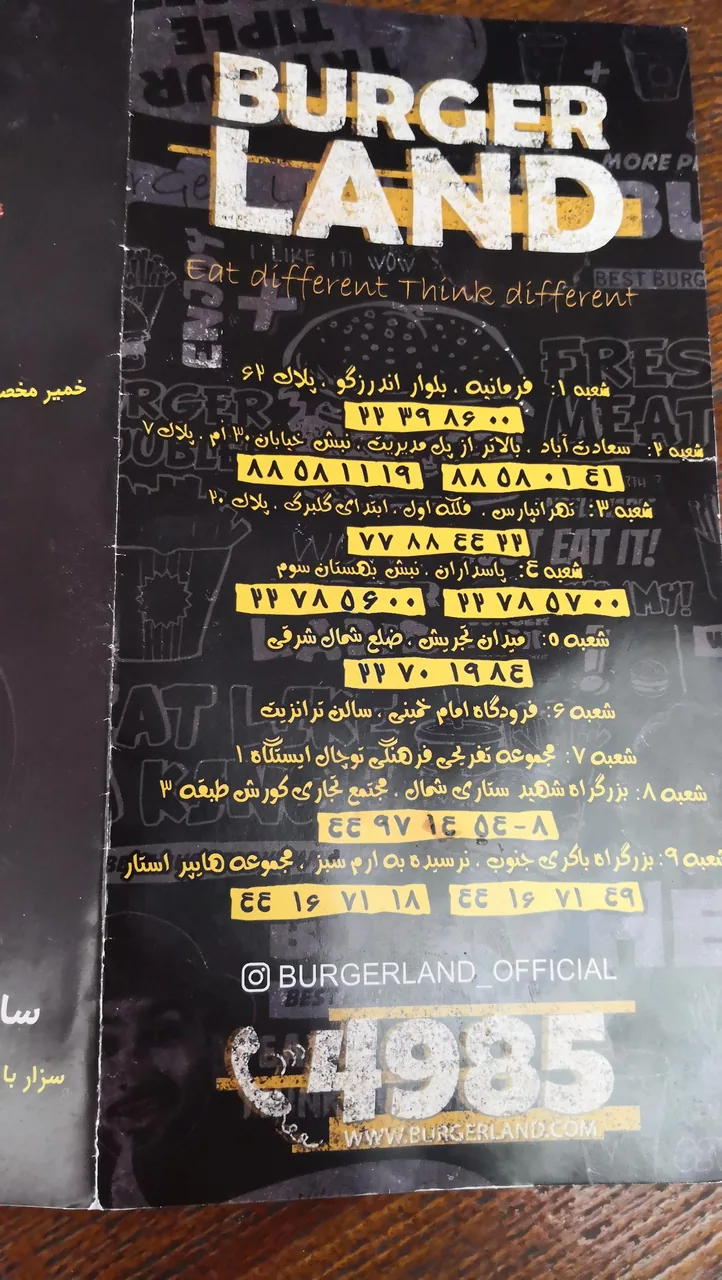 BURGER
LAND
Eat different Think different
شعبه ۱: فرمانیه . بلوار اندرزگو . پلاک ۶۲
۲۲ ۳۹ ۸۶ ۰۰
شعبه ۲: سعادت آباد . بالاتر از پل مدیریت . نبش خیابان ۳۰ ام . پلاک ۷
۸۸ ۵۸ ۰۱ ٤۱ ۸۸ ۵۸ ۱۱ ۱۹
شعبه ۳: تهرانپارس . فلکه اول . ابتدای گلبرگ . پلاک ۲۰
۷۷ ۸۸ ٤٤ ۲۲
شعبه ٤: پاسداران . نبش بهستان سوم
۲۲ ۷۸ ۵۷ ۰۰ ۲۲ ۷۸ ۵۶ ۰۰
شعبه ۵: میدان تجریش . ضلع شمال شرقی
۲۲ ۷۰ ۱۹ ۸٤
شعبه ۶: فرودگاه امام خمینی . سالن ترانزیت
شعبه ۷: مجموعه تفریحی فرهنگی توچال ایستگاه ۱
شعبه ۸: بزرگراه شهید ستاری شمال . مجتمع تجاری کورش طبقه ۳
٤٤ ۹۷ ۱٤ ۵٤-۸
شعبه ۹: بزرگراه باکری جنوب . نرسیده به ارم سبز . مجموعه هایپر استار
٤٤ ۱۶ ۷۱ ٤۹ ٤٤ ۱۶ ۷۱ ۱۸
BURGERLAND_OFFICIAL
4985
WWW.BURGERLAND.COM
خمیر
سزار با